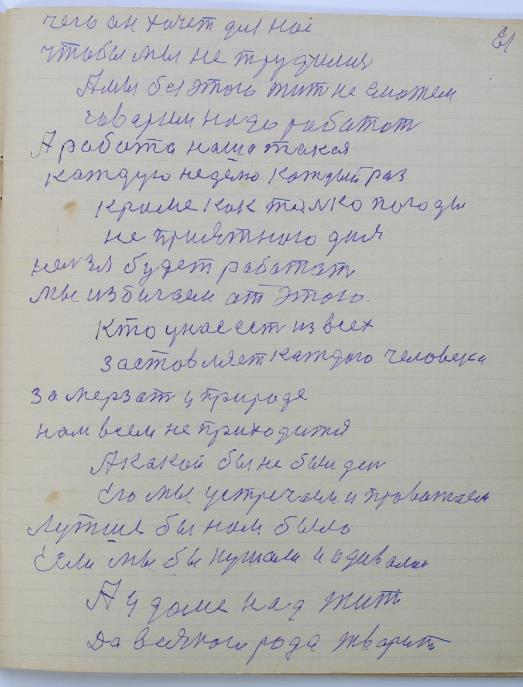 чего он хочет для нас
чтобы мы не трудился
Амы без этого жит не сможем
говарим надо работат
А работа наша такая
каждую неделю каждый раз
кроме как толко погоды
не приятного дня
нелзя будет работат
мы избигаем от этого.
Кто унас ест из всех
заставляет каждого человека
замерзат у природе
нам всем не приходится
Акакой бы не был ден
Его мы устречаем и проважаем
лутше бы нам было
Если мы бы кушали и одивалис
А у доме над жит
Да всякого рода тварит